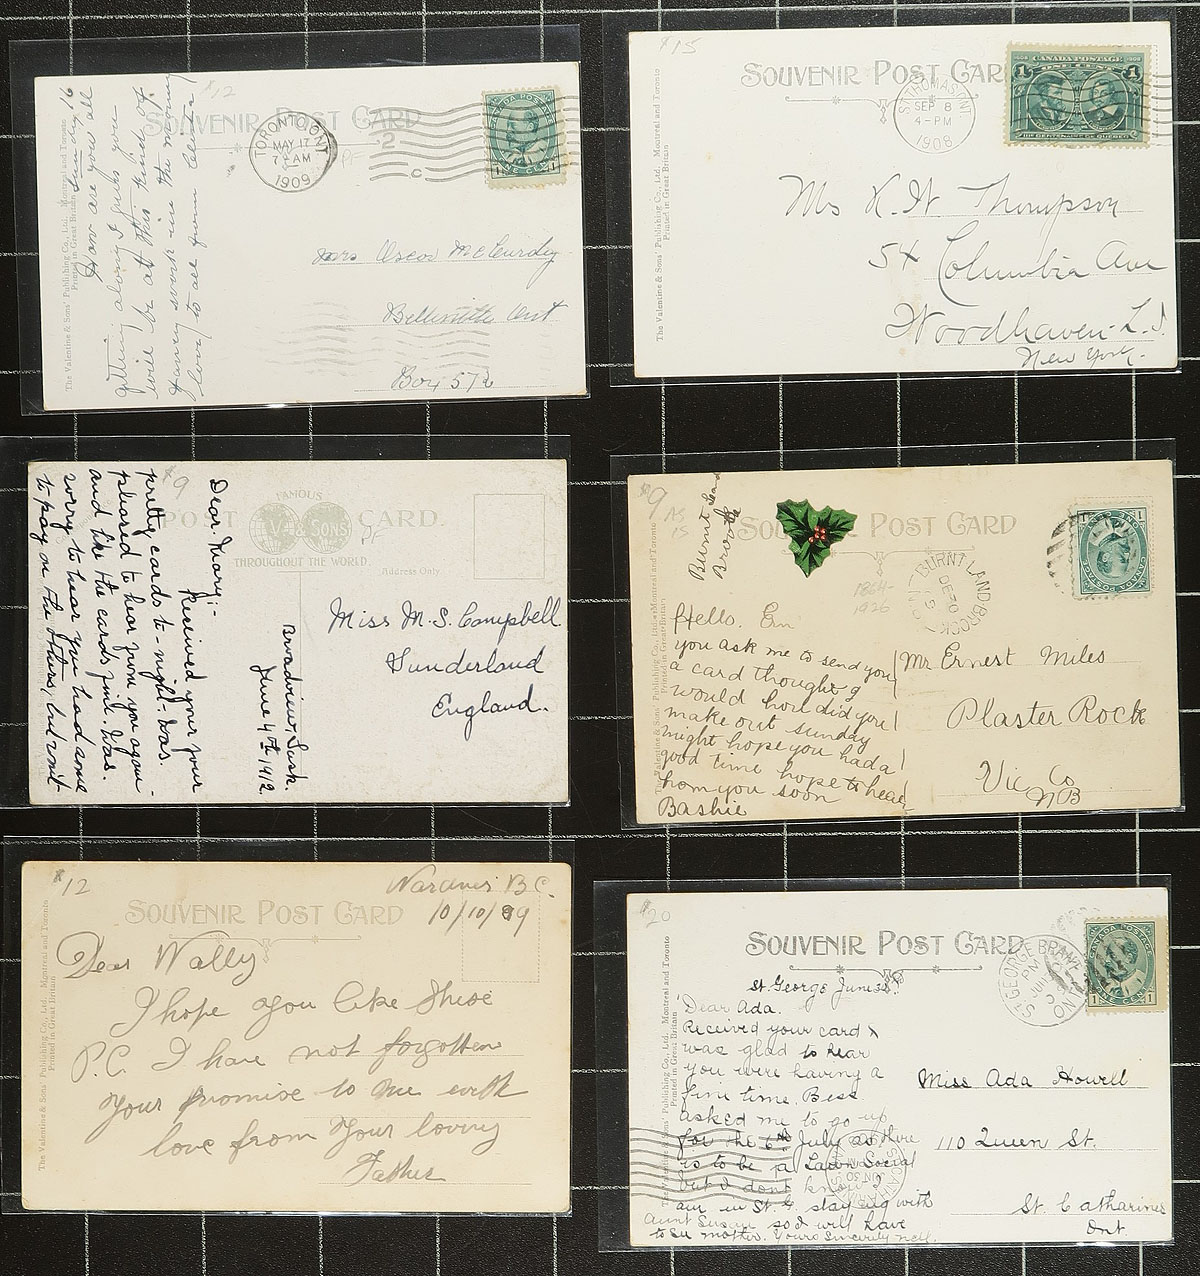 $12
SOUVENIR POST CARD
TORONTO, ONT
MAY 17
7 - AM
1909
CANADA POSTAGE
1 1
ONE CENT
The Valentine & Sons' Publishing Co., Ltd. Montreal and Toronto
Printed in Great Britain
Sunday 16
How are you all
getting along I guess you
will be at this kind of
fancy work in the
love to all from
Mrs Oscar McCurdy
Belleville Ont
Box 572
$15
SOUVENIR POST CARD
ST. THOMAS, ONT
SEP 8
4 - PM
1908
CANADA POSTAGE
1 ONE CENT 1
IIIe CENTENAIRE DE QUEBEC
The Valentine & Sons' Publishing Co., Ltd. Montreal and Toronto
Printed in Great Britain
Mrs K. W Thompson
54 Columbia Ave
Woodhaven L. I.
New York.
$9
FAMOUS
POST CARD.
V & SONS
THROUGHOUT THE WORLD.
PF
Address Only.
Broadview, Sask.
June 4th 1912
Dear Mary;-
Received your
pretty cards to-night. Was
pleased to hear from you again
and like the cards fine. Was
sorry to hear you had some
to pay on the others, but
Miss M. S. Campbell
Sunderland
England.
$9
AS
IS
SOUVENIR POST CARD
Burnt Land
Brook
1864-
1926
BURNT LAND BROOK
DE 20
The Valentine & Sons' Publishing Co., Ltd. Montreal and Toronto
Printed in Great Britain
Hello. Ern
you ask me to send you
a card thought I
would how did you
make out sunday
night hope you had a
good time hope to hear
from you soon
Bashie
Mr Ernest Miles
Plaster Rock
Vic Co
NB
$12
Wardner B.C.
SOUVENIR POST CARD
10/10/09
The Valentine & Sons' Publishing Co., Ltd. Montreal and Toronto
Printed in Great Britain
Dear Wally
I hope you like these
P.C. I have not forgotten
your promise to me with
love from your loving
Father
$20
SOUVENIR POST CARD
ST. GEORGE BRANT
ONT
CANADA POSTAGE
1 1
The Valentine & Sons' Publishing Co., Ltd. Montreal and Toronto
Printed in Great Britain
St. George June
Dear Ada.
Received your card &
was glad to hear
you were having a
fine time. Bess
asked me to go up
for the 6th July as there
is to be a Lawn Social
but I don't know I
am in St. G. staying with
Aunt Susan so I will have
to see mother. Yours Sincerely Nell.
Miss Ada Howell
110 Queen St.
St. Catharines
Ont.